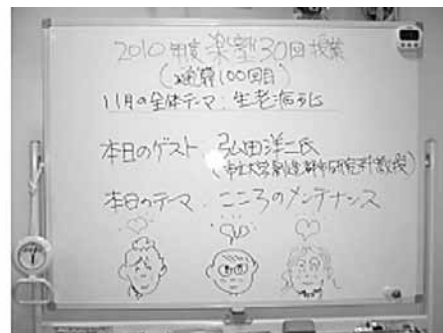 2010年度楽塾30回授業
(通算100回目)
11月の全体テーマ:生老病死
本日のゲスト 弘田洋二氏
(市立大学創造都市研究科教授)
本日のテーマ:こころのメンテナンス